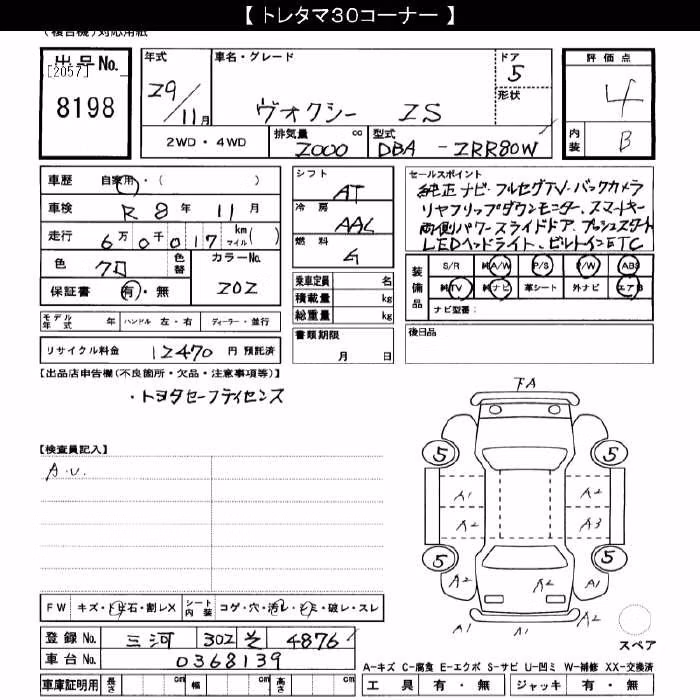 【 トレタマ30コーナー 】
(複合機)対応用紙
出品No. [2057] 8198
年式 29/11月
車名・グレード ヴォクシー ZS
ドア 5
形状
評価点 4
内装 B
2WD・4WD
排気量 2000 cc
型式 DBA - ZRR80W
車歴 自家用・( )
車検 R 8年 11月
走行 6万0千017 km マイル( )
色 クロ 色替 カラーNo. 202
保証書 有・無
モデル年式 年 ハンドル 左・右 ディーラー・並行
リサイクル料金 12470 円 預託済
シフト AT
冷房 AAC
燃料 G
乗車定員 名
積載量 kg
総重量 kg
書類期限 月 日
セールスポイント
純正ナビ・フルセグTV・バックカメラ
リヤフリップダウンモニター、スマートキー
両側パワースライドドア、プッシュスタート
LEDヘッドライト、ビルトインETC
装備品 S/R 純A/W P/S P/W ABS
純TV 純ナビ 革シート 外ナビ エアB
ナビ型番:
後日品
【出品店申告欄(不良箇所・欠品・注意事項等)】
・トヨタセーフティセンス
【検査員記入】
A.U.
FA
5 5
A1 A2
A2 A3
5 5
A2 A2 A1
A1 A1 A2
スペア
FW キズ・トビ石・割レX シート内装 コゲ・穴・汚レ・シミ・破レ・スレ
登録No. 三河 302 そ 4876
車台No. 0368139
車庫証明用 長さ cm 幅 cm 高さ cm
A-キズ C-腐食 E-エクボ S-サビ U-凹ミ W-補修 XX-交換済
工具 有・無 ジャッキ 有・無